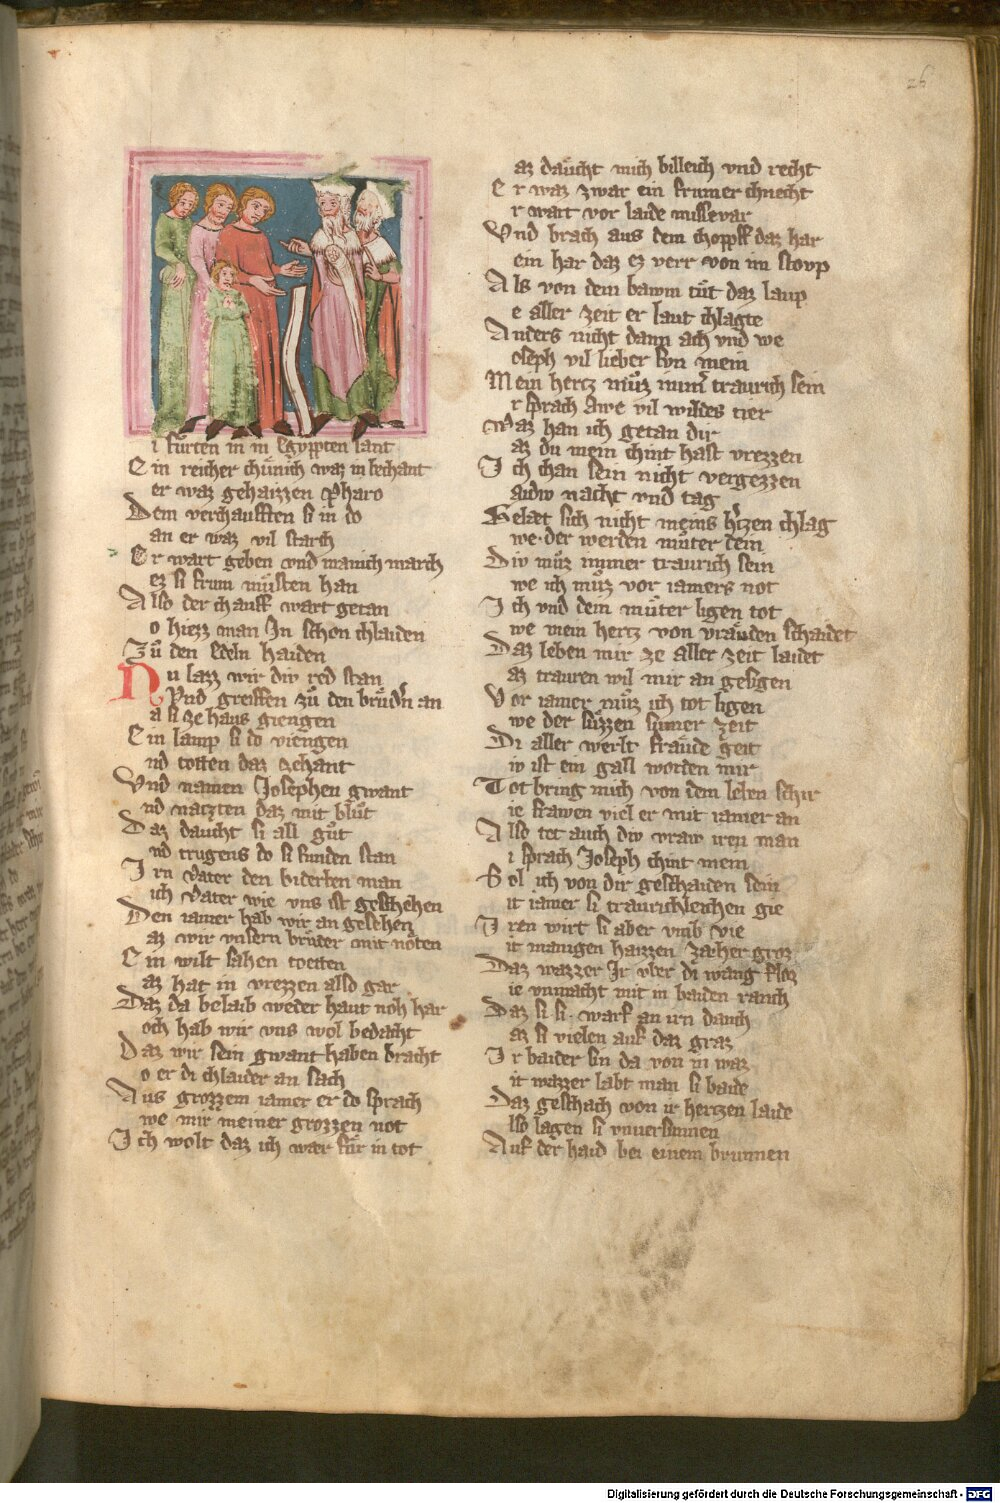 26
i fürten in in Egyppten lant
Ein reicher chünich waz in bechant
er waz gehaizzen Pharo
Dem verchaufften si in do
an er waz vil starch
Er wart geben vmb manich march
ez si frum müsten han
Also der chauff wart getan
o hiezz man In schon chlaiden
Zů den Edeln haiden
Nu lazz wir div red stan
Vnd greiffen zů den brüdern an
a si ze haus giengen
Ein lamp si do viengen
nd totten daz zehant
Vnd namen Josephen gwant
nd naczten daz mit blůt
Daz daucht si all gůt
nd trugens do si funden stan
Irn vater den biderben man
ich vater wie vns ist geschehen
Den iamer hab wir an gesehen
az wir vnsern brüder mit nöten
Ein wilt sahen toeten
az hat in vrezzen also gar
Daz da belaib weder haut noh har
och hab wir vns wol bedacht
Daz wir sein gwant haben bracht
o er di chlaider an sach
Aus grozzem iamer er do sprach
we mir meiner grozzen not
Ich wolt daz ich wær für in tot
az däucht mich billeich vnd recht
Er waz zwar ein frumer chnecht
r wart vor laide missevar
Vnd brach aus dem chopff daz har
ein har daz ez verr von im stovp
Als von dem bawm tüt daz laup
e aller zeit er laut chlagte
Anders nicht dann ach vnd we
oseph vil lieber svn mein
Mein hertz můz immer traurich sein
r sprach awe vil wildes tier
Waz han ich getan dir
az du mein chint hast vrezzen
Ich chan sein nicht vergezzen
aidw nacht vnd tag
Geladet sich nicht meins hertzen chlag
we der werden můter dein
Div můz immer traurich sein
we ich můz vor iamers not
Ich vnd dein můter ligen tot
we mein hertz von vräuden schaidet
Daz leben mir ze aller zeit laidet
az trauren wil mir an gesigen
Vor iamer můz ich tot ligen
we der süzzen sumer zeit
Di aller werlt fräude geit
iv ist ein gall worden mir
Tot bring mich von dem leben schir
ie frawen viel er mit iamer an
Also tet auch div vraw iren man
i sprach Joseph chint mein
Sol ich von dir geschaiden sein
it iamer si traurichleichen gie
Iren wirt si aber vmb vie
it manigen haizzen zæher groz
Daz wazzer Ir vber di wang floz
ie vnmacht mit in baiden ranch
Daz si si warf an irn danch
az si vielen auf daz graz
Ir baider sin da von in waz
it wazzer labt man si baide
Daz geschach von ir hertzen laide
lso lagen si vnuersunnen
Auf der haid bei einem brunnen
Digitalisierung gefördert durch die Deutsche Forschungsgemeinschaft - DFG